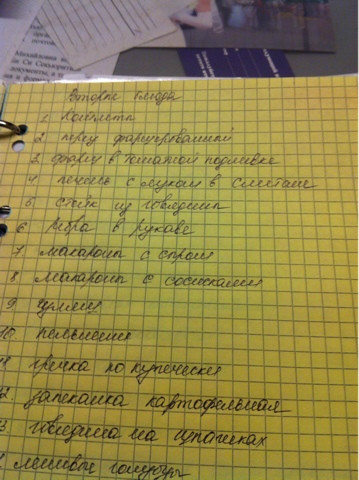 Михайловна
Вторые блюда
1 Котлеты
2. перец фаршированный
3 фарш в томатной подливке
4 печень с луком в сметане
5 стейк из говядины
6 Рёбра в рукаве
7. макароны с сыром
8 макароны с сосисками
9 гуляш
10. пельмени
гречка по купечески
2. запеканка картофельная
3. говядина на шпажках
ленивые голубцы